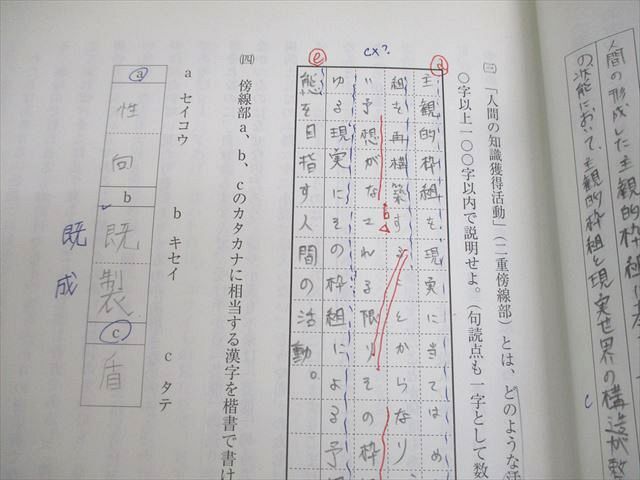 人間の形成した主観的枠組
の状態において、主観的枠組と現実世界の構造が
㈢ 「人間の知識獲得活動」(二重傍線部)とは、どのような活
〇字以上一〇〇字以内で説明せよ。(句読点も一字として数
cx?
a
主観的枠組を現実に当てはめ
組を再構築することからなり、
い予想がなされる限りその枠
ゆる現実にその枠組による予
e
態を目指す人間の活動。
㈣ 傍線部a、b、cのカタカナに相当する漢字を楷書で書け
a セイコウ
b キセイ
c タテ
a
性向
b
既製
c
盾
既成